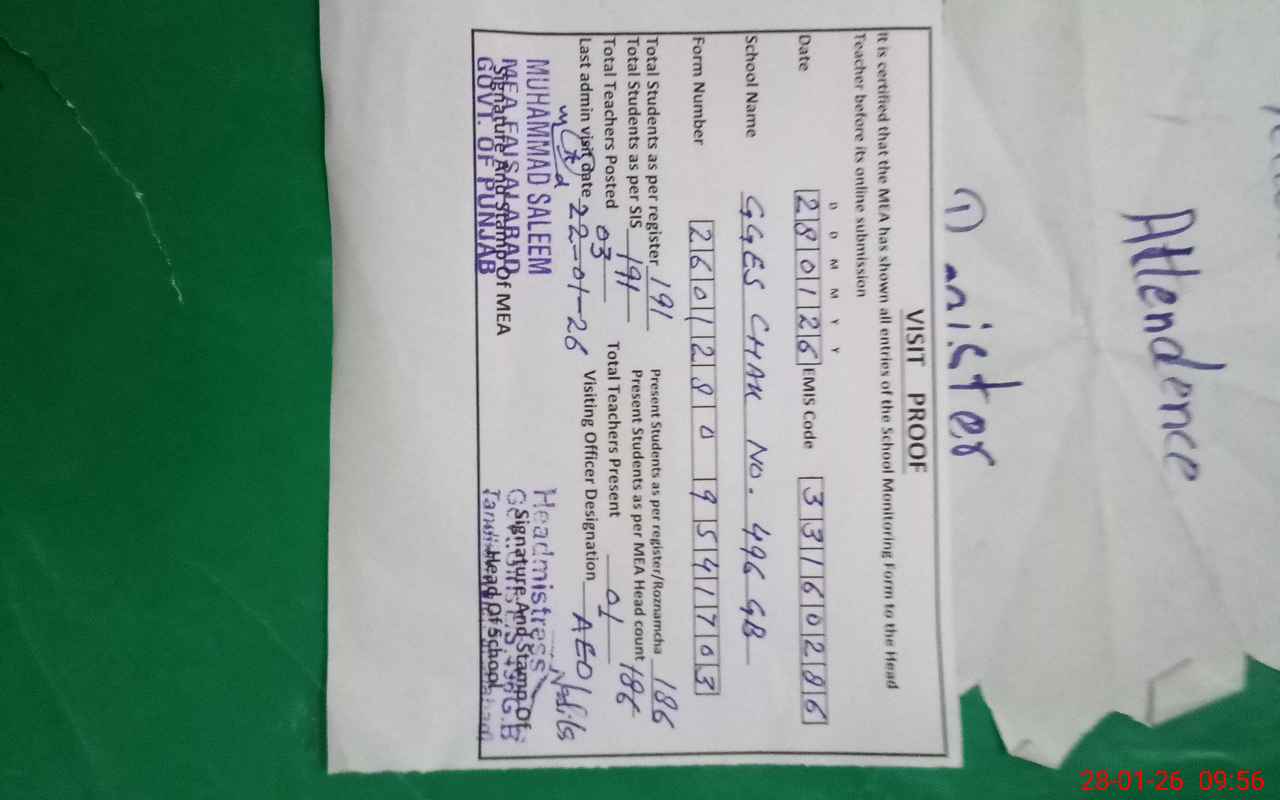 Attendence
VISIT PROOF
It is certified that the MEA has shown all entries of the School Monitoring Form to the Head
Teacher before its online submission
D D M M Y Y
Date 280126 EMIS Code 33160286
School Name GGES CHAK NO. 496 GB
Form Number 2601280 9541703
Total Students as per register 191 Present Students as per register/Roznamcha 186
Total Students as per SIS 191 Present Students as per MEA Head count 186
Total Teachers Posted 03 Total Teachers Present 01
Last admin visit date 22-01-26 Visiting Officer Designation AEO
MUHAMMAD SALEEM
MEA FAISALABAD
GOVT. OF PUNJAB
Signature And Stamp Of MEA
Headmistress
Signature And Stamp Of
Head Of School
28-01-26 09:56